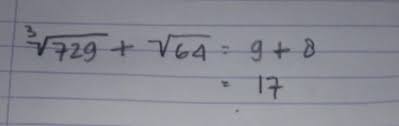 ∛729 + √64 = 9 + 8
= 17